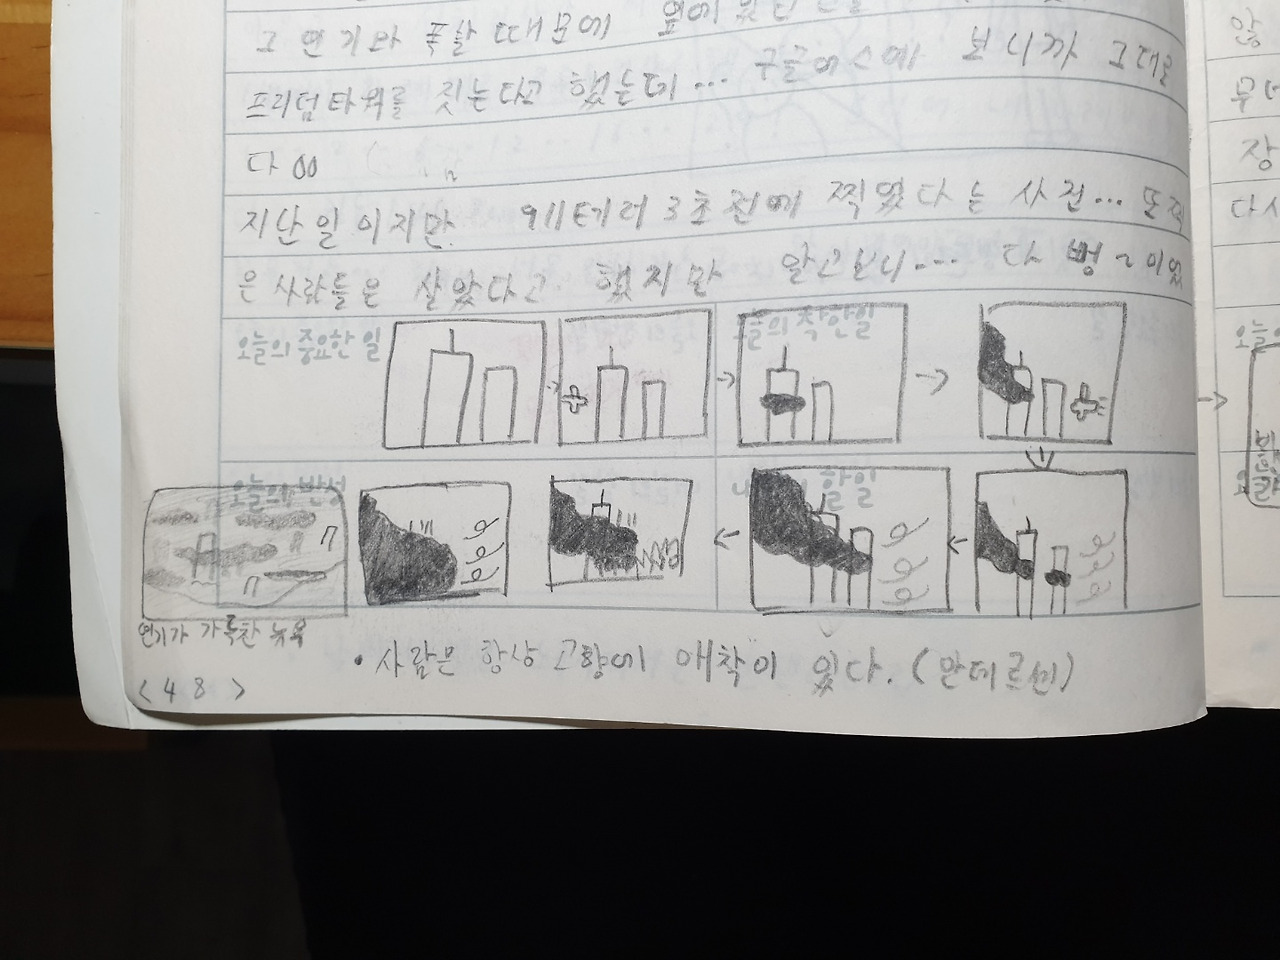 그 연기와 폭발 때문에 옆에 있던
프리덤타워를 짓는다고 했는데... 구글어스에 보니까 그대로
다 ㅇㅇ
지난일이지만. 911테러 3초전에 찍었다는 사진... 또
은 사람들은 살았다고 했지만 알고보니... 다 뻥~이었
오늘의 중요한 일
오늘의 착한일
오늘의 반성
할일
연기가 가득찬 뉴욕
• 사람은 항상 고향에 애착이 있다. (안데르센)
<48>
않
무
장
다시
오늘의